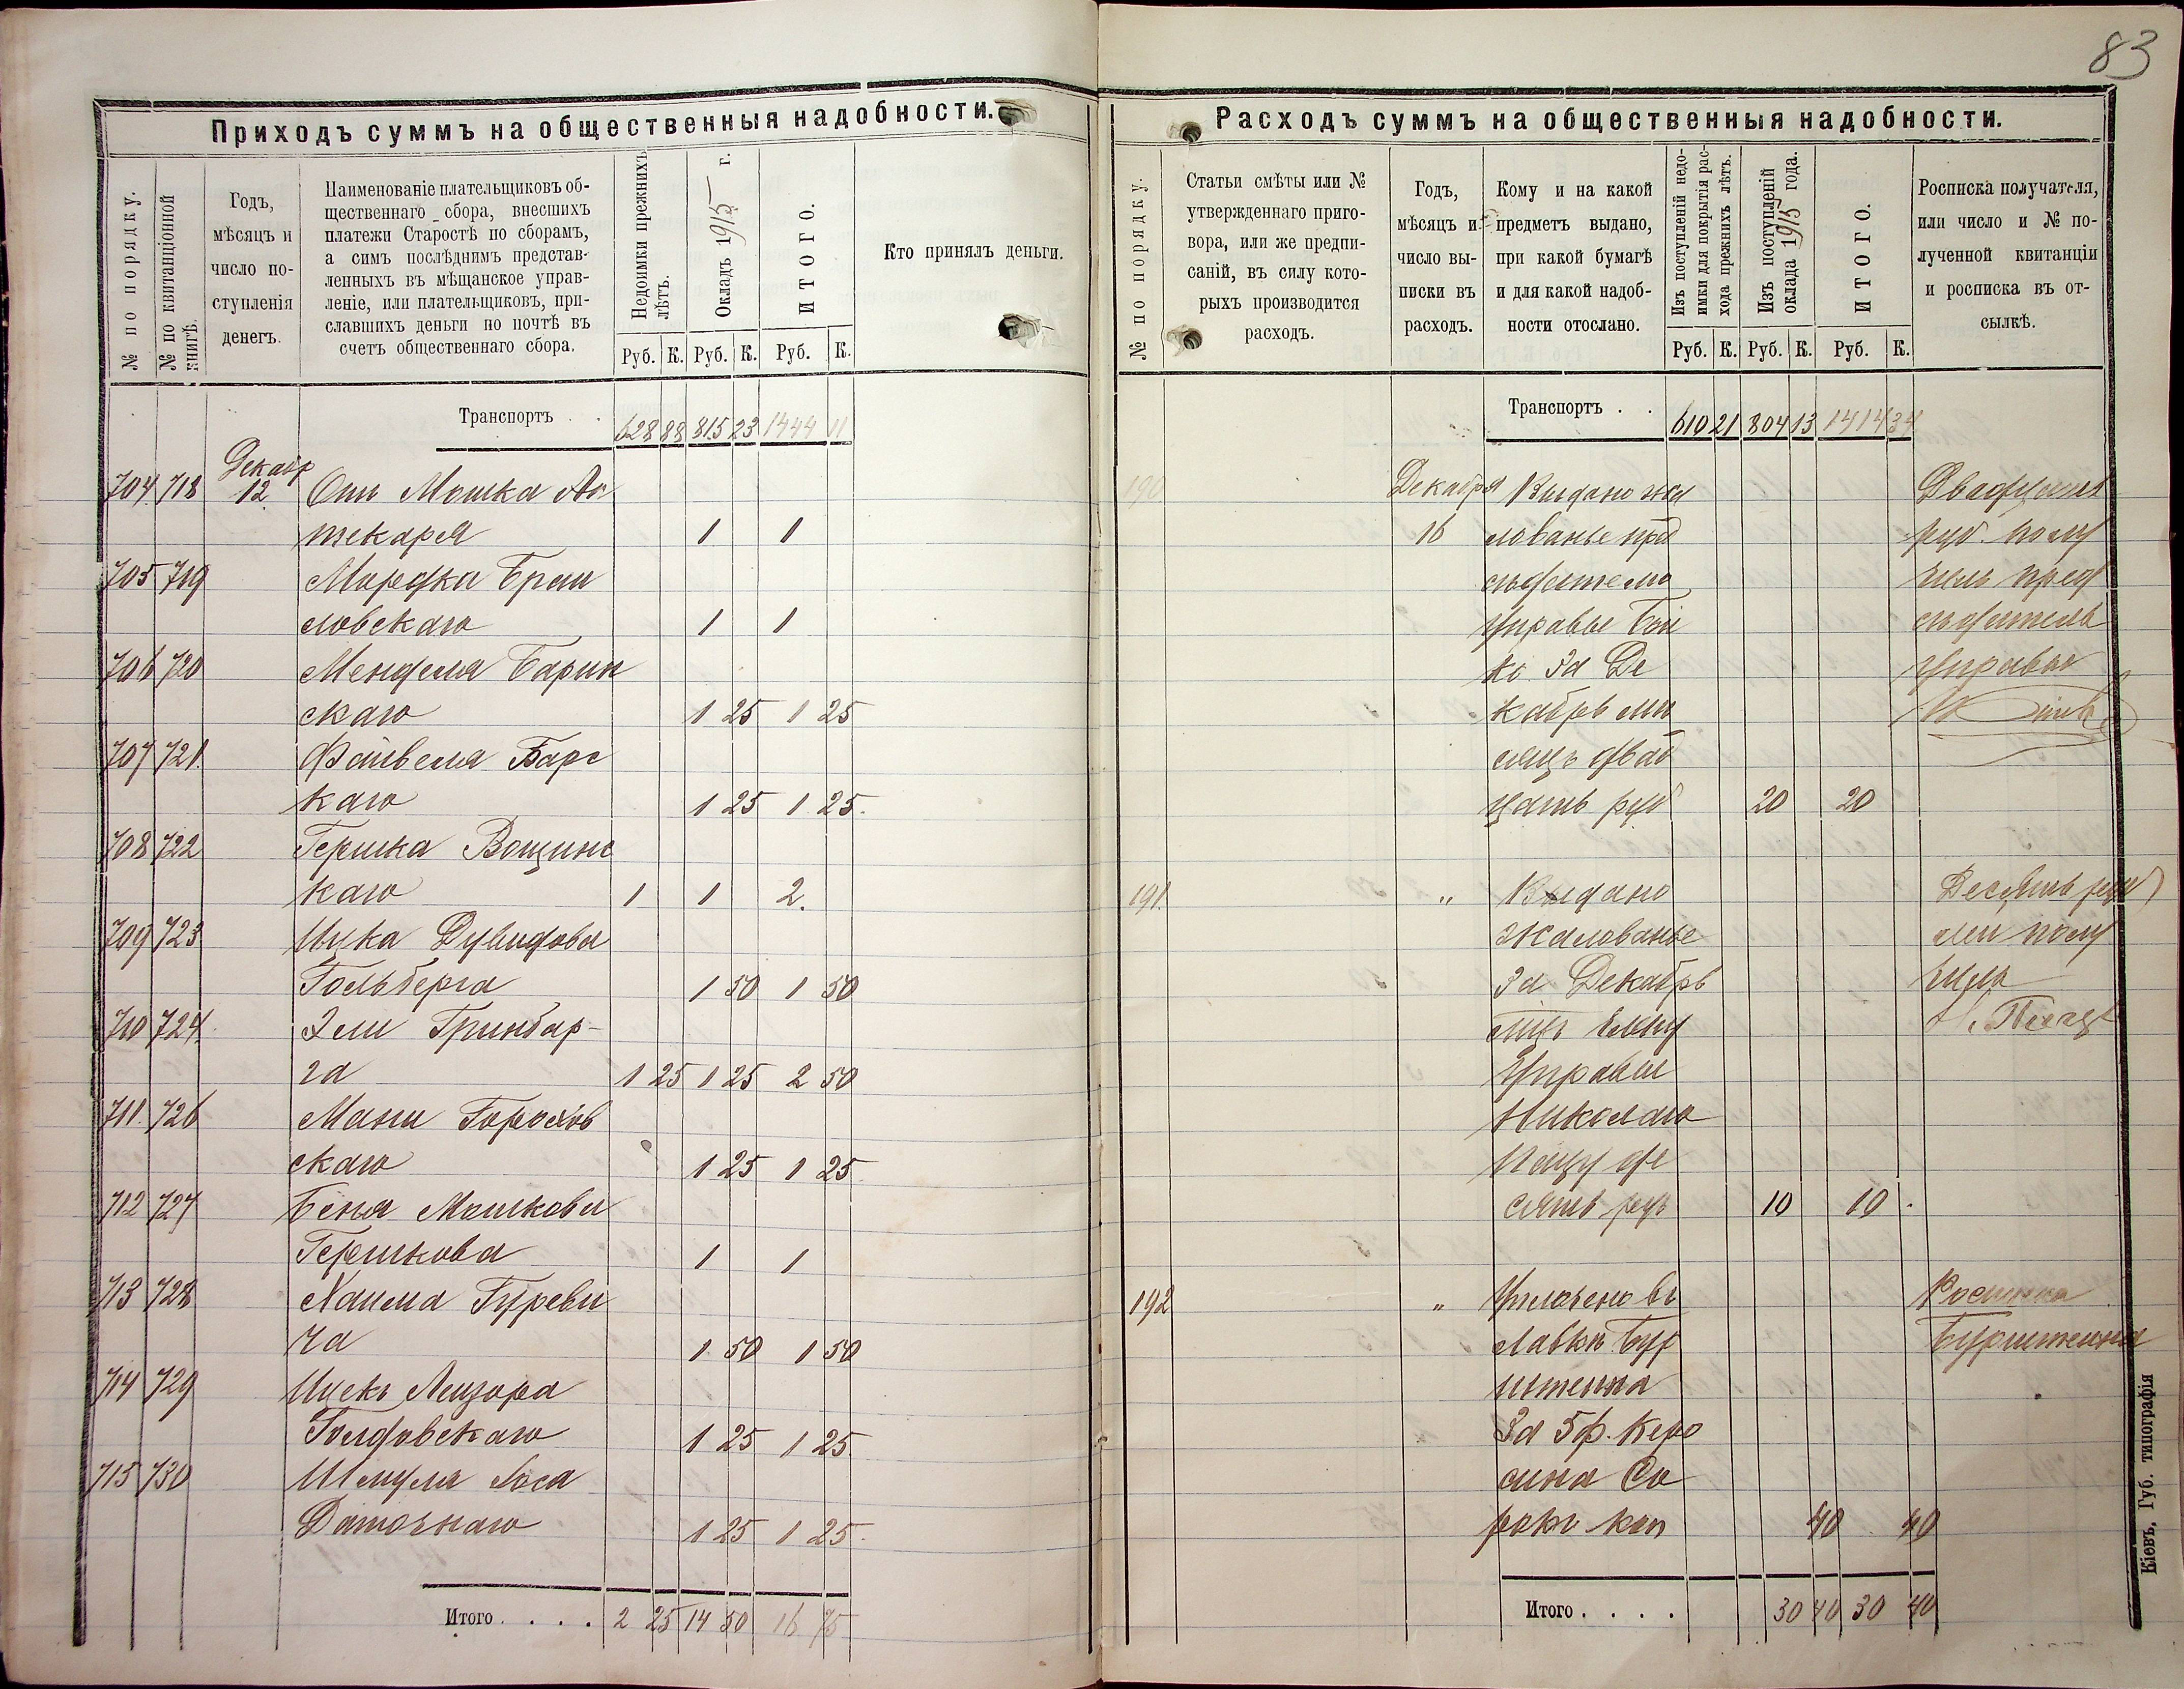 83
Приходъ суммъ на общественныя надобности.
№ по порядку.
№ по квитанціонной книгѣ.
Годъ,
мѣсяцъ и
число по-
ступленія
денегъ.
Наименованіе плательщиковъ об-
щественнаго сбора, внесшихъ
платежи Старостѣ по сборамъ,
а симъ послѣднимъ представ-
ленныхъ въ мѣщанское управ-
леніе, или плательщиковъ, при-
славшихъ деньги по почтѣ въ
счетъ общественнаго сбора.
Недоимки прежнихъ лѣтъ.
Окладъ 1915 г.
ИТОГО.
Кто принялъ деньги.
Руб. К. Руб. К. Руб. К.
Транспортъ . . 628 88 815 23 1444 11
Декабр
704 718 12 Отъ Мошка Ап
текаря 1 1
705 719 Мордка Брац
ловскаго 1 1
706 720 Менделя Барин
скаго 1 25 1 25
707 721. Файвеля Барс
каго 1 25 1 25.
708 722 Гершка Вощинс
каго 1 1 2.
709 723 Ицка Дувидова
Гольберга 1 50 1 50
710 724. Эли Гринбар-
га 1 25 1 25 2 50
711. 726 Мани Горохов
скаго 1 25 1 25
712 727 Беня Мошкова
Гершкова 1 1
713 728 Хаима Гуреви
ча 1 50 1 50
714 729 Ицекъ Лейзора
Голдовскаго 1 25 1 25
715 730 Шмуля Іоса
Даточнаго 1 25 1 25.
Итого . . . . 2 25 14 50 16 75
Расходъ суммъ на общественныя надобности.
№ по порядку.
Статьи смѣты или №
утвержденнаго приго-
вора, или же предпи-
саній, въ силу кото-
рыхъ производится
расходъ.
Годъ,
мѣсяцъ и
число вы-
писки въ
расходъ.
Кому и на какой
предметъ выдано,
при какой бумагѣ
и для какой надоб-
ности отослано.
Изъ поступленій недо-
имки для покрытія рас-
хода прежнихъ лѣтъ.
Изъ поступленій
оклада 1915 года.
ИТОГО.
Росписка получателя,
или число и № по-
лученной квитанціи
и росписка въ от-
сылкѣ.
Руб. К. Руб. К. Руб. К.
Транспортъ . . 610 21 804 13 1414 34
190 Декабря Выдано жа Двадцать
16 лованье пред руб. полу
сѣдателю чилъ пред
Управы сѣдатель
За Де Управы
кабрь мѣ
сяцъ двад
цать руб 20 20
191. " Выдано Десять руб
жалованье лей полу
За Декабрь чилъ
мцъ Члену Н. Пацъ
Управы
Николаю
Пацу де
сять руб 10 10.
192 " Уплочено въ Росписка
лавкѣ Бур Бурштейна
штейна
За 5 ф. Керо
сина Со
рокъ коп 40 40
Итого . . . . 30 40 30 40
Кіевъ, Губ. типографія